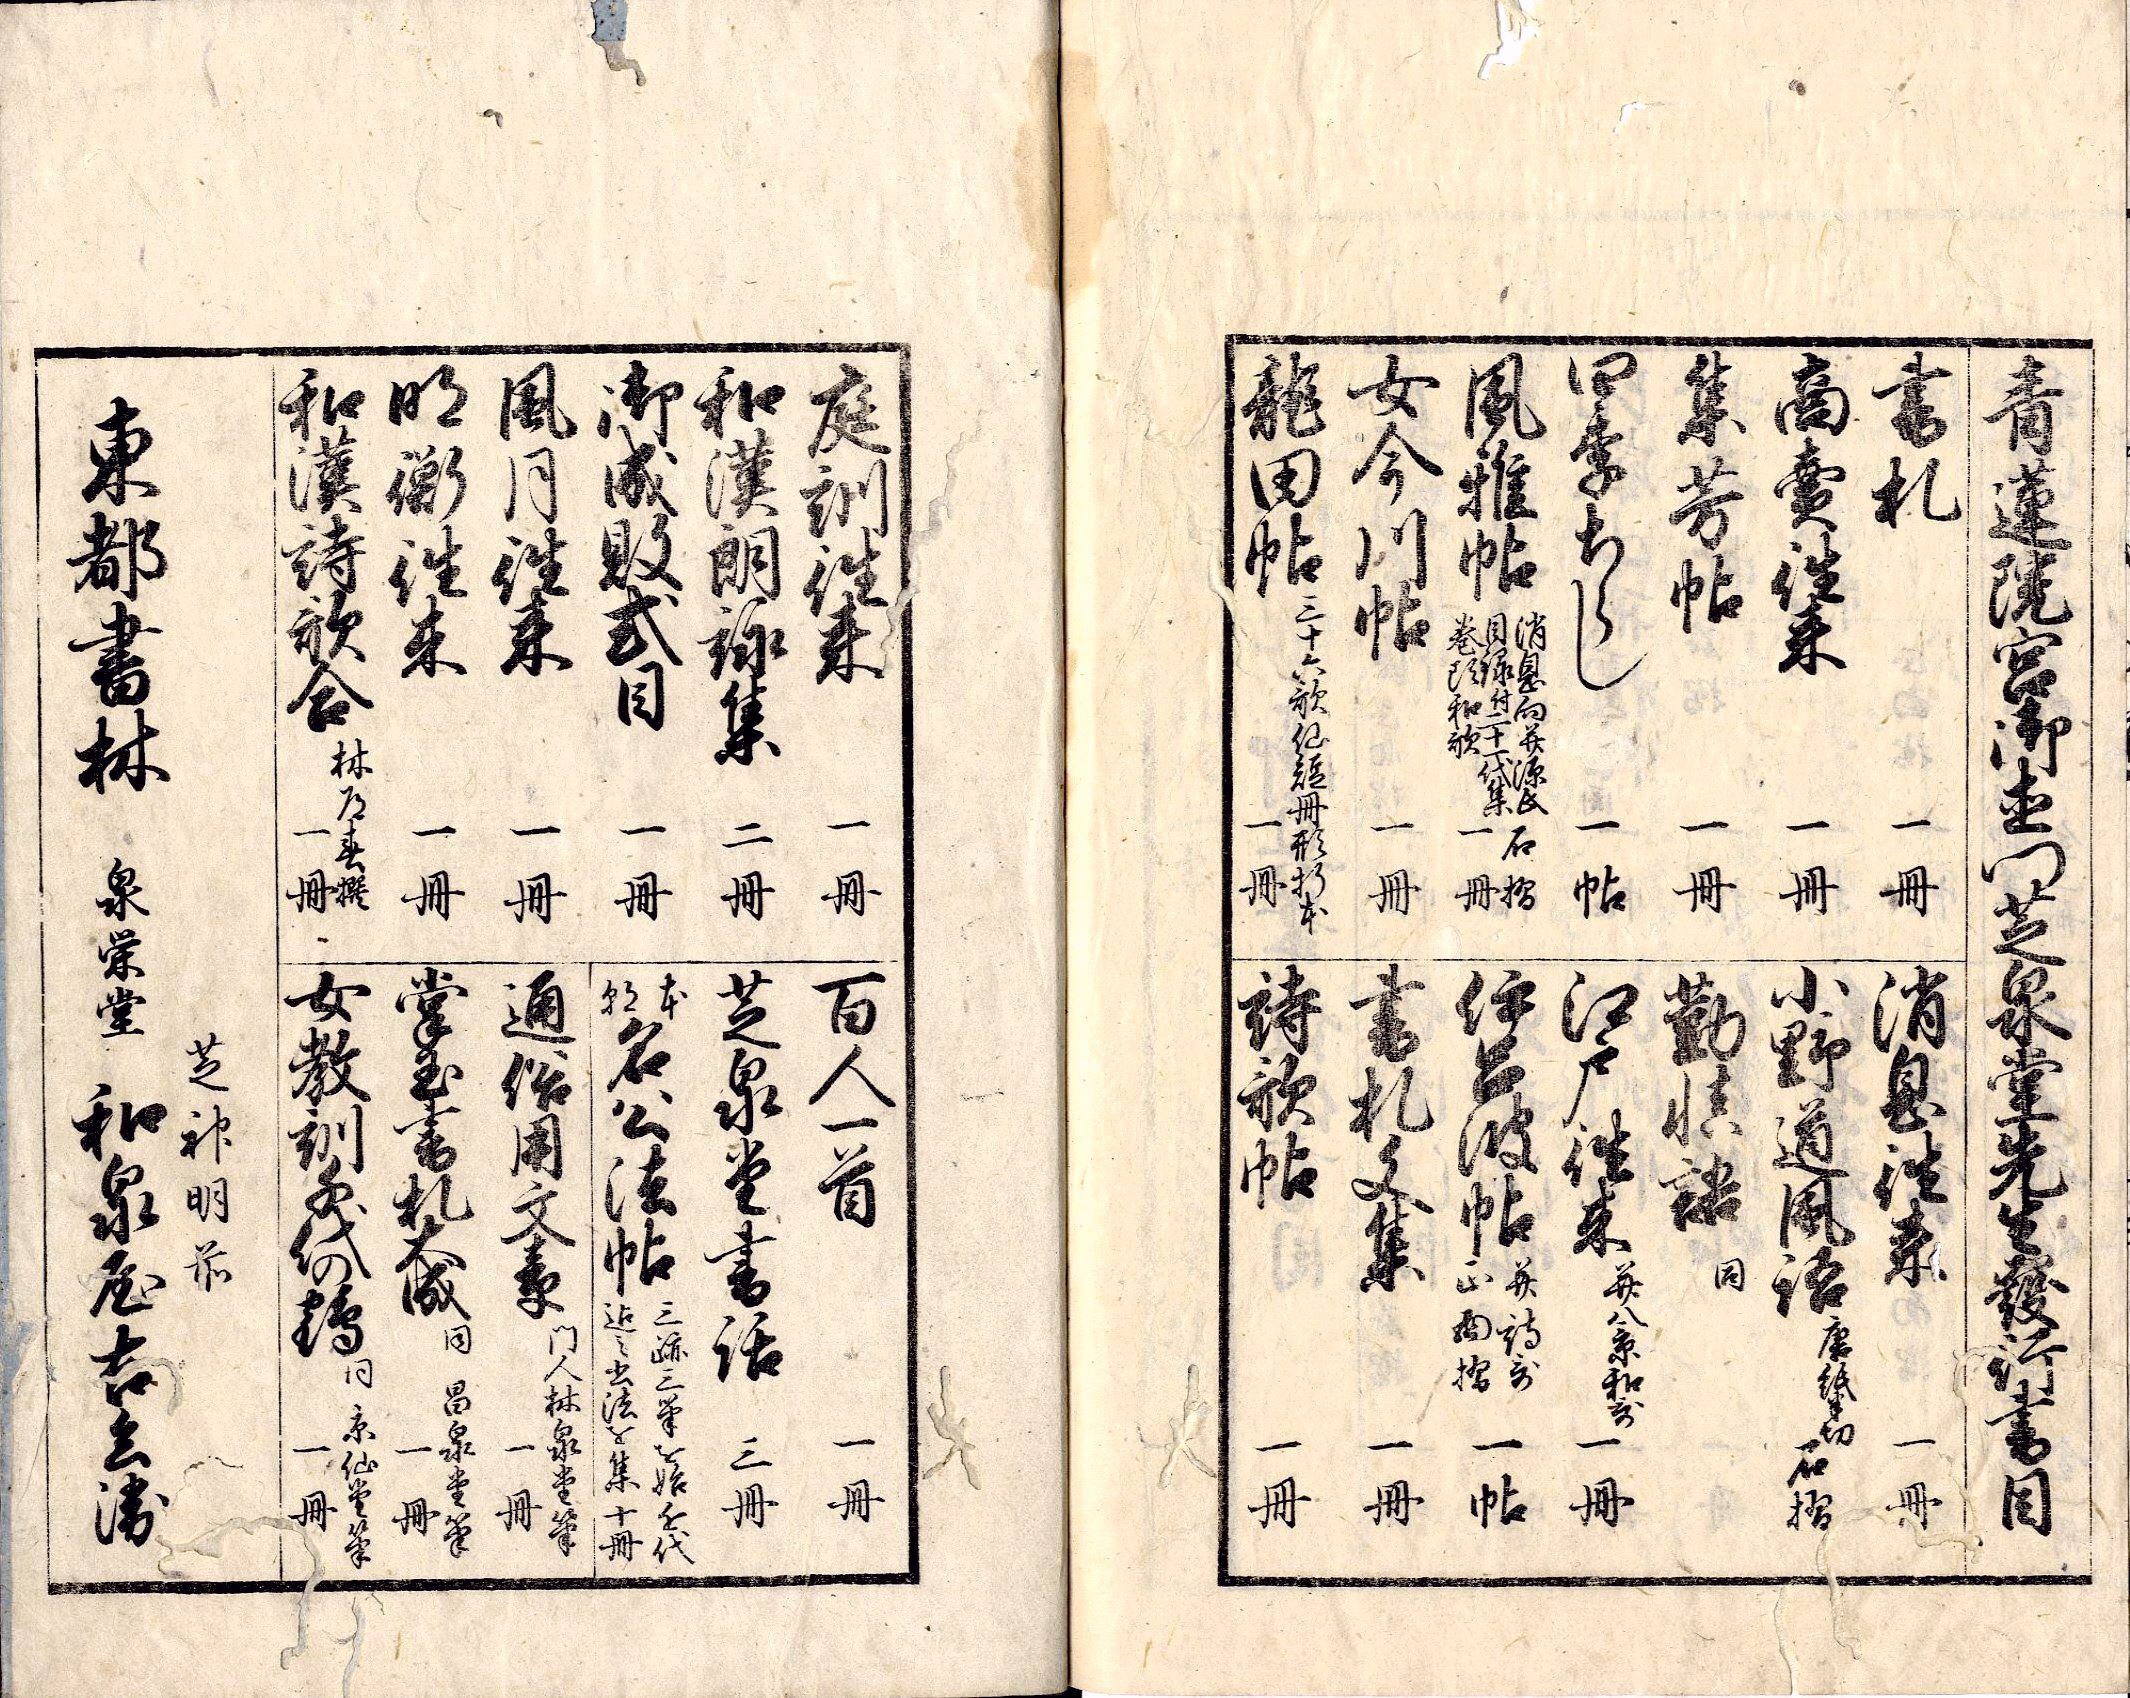 青蓮院宮御直門芝泉堂先生發行書目
書札 一冊
商賣往来 一冊
集芳帖 一冊
四季あらし 一帖
風雅帖 消息向并源氏目録付二十一代集巻頭和歌 石摺一冊
女今川帖 一冊
龍田帖 三十六歌仙短冊形折本 一冊
消息往来 一冊
小野道風語 唐紙切 石摺
勤慎語 同
江戸往来 并八景和哥 一冊
伊呂波帖 并詩哥 正面摺 一帖
書札文集 一冊
詩歌帖 一冊
庭訓往来 一冊
和漢朗詠集 二冊
御成敗式目 一冊
風月往来 一冊
明衡往来 一冊
和漢詩歌合 林道春撰 一冊
百人一首 一冊
芝泉堂書話 三冊
本朝名公法帖 三跡三筆を始近代迄之書法を集 十冊
通俗用文章 門人林泉堂筆 一冊
掌玉書札大成 同 昌泉堂筆 一冊
女教訓千代の鶴 同 京仙堂筆 一冊
芝神明前
東都書林 泉栄堂 和泉屋吉兵衛